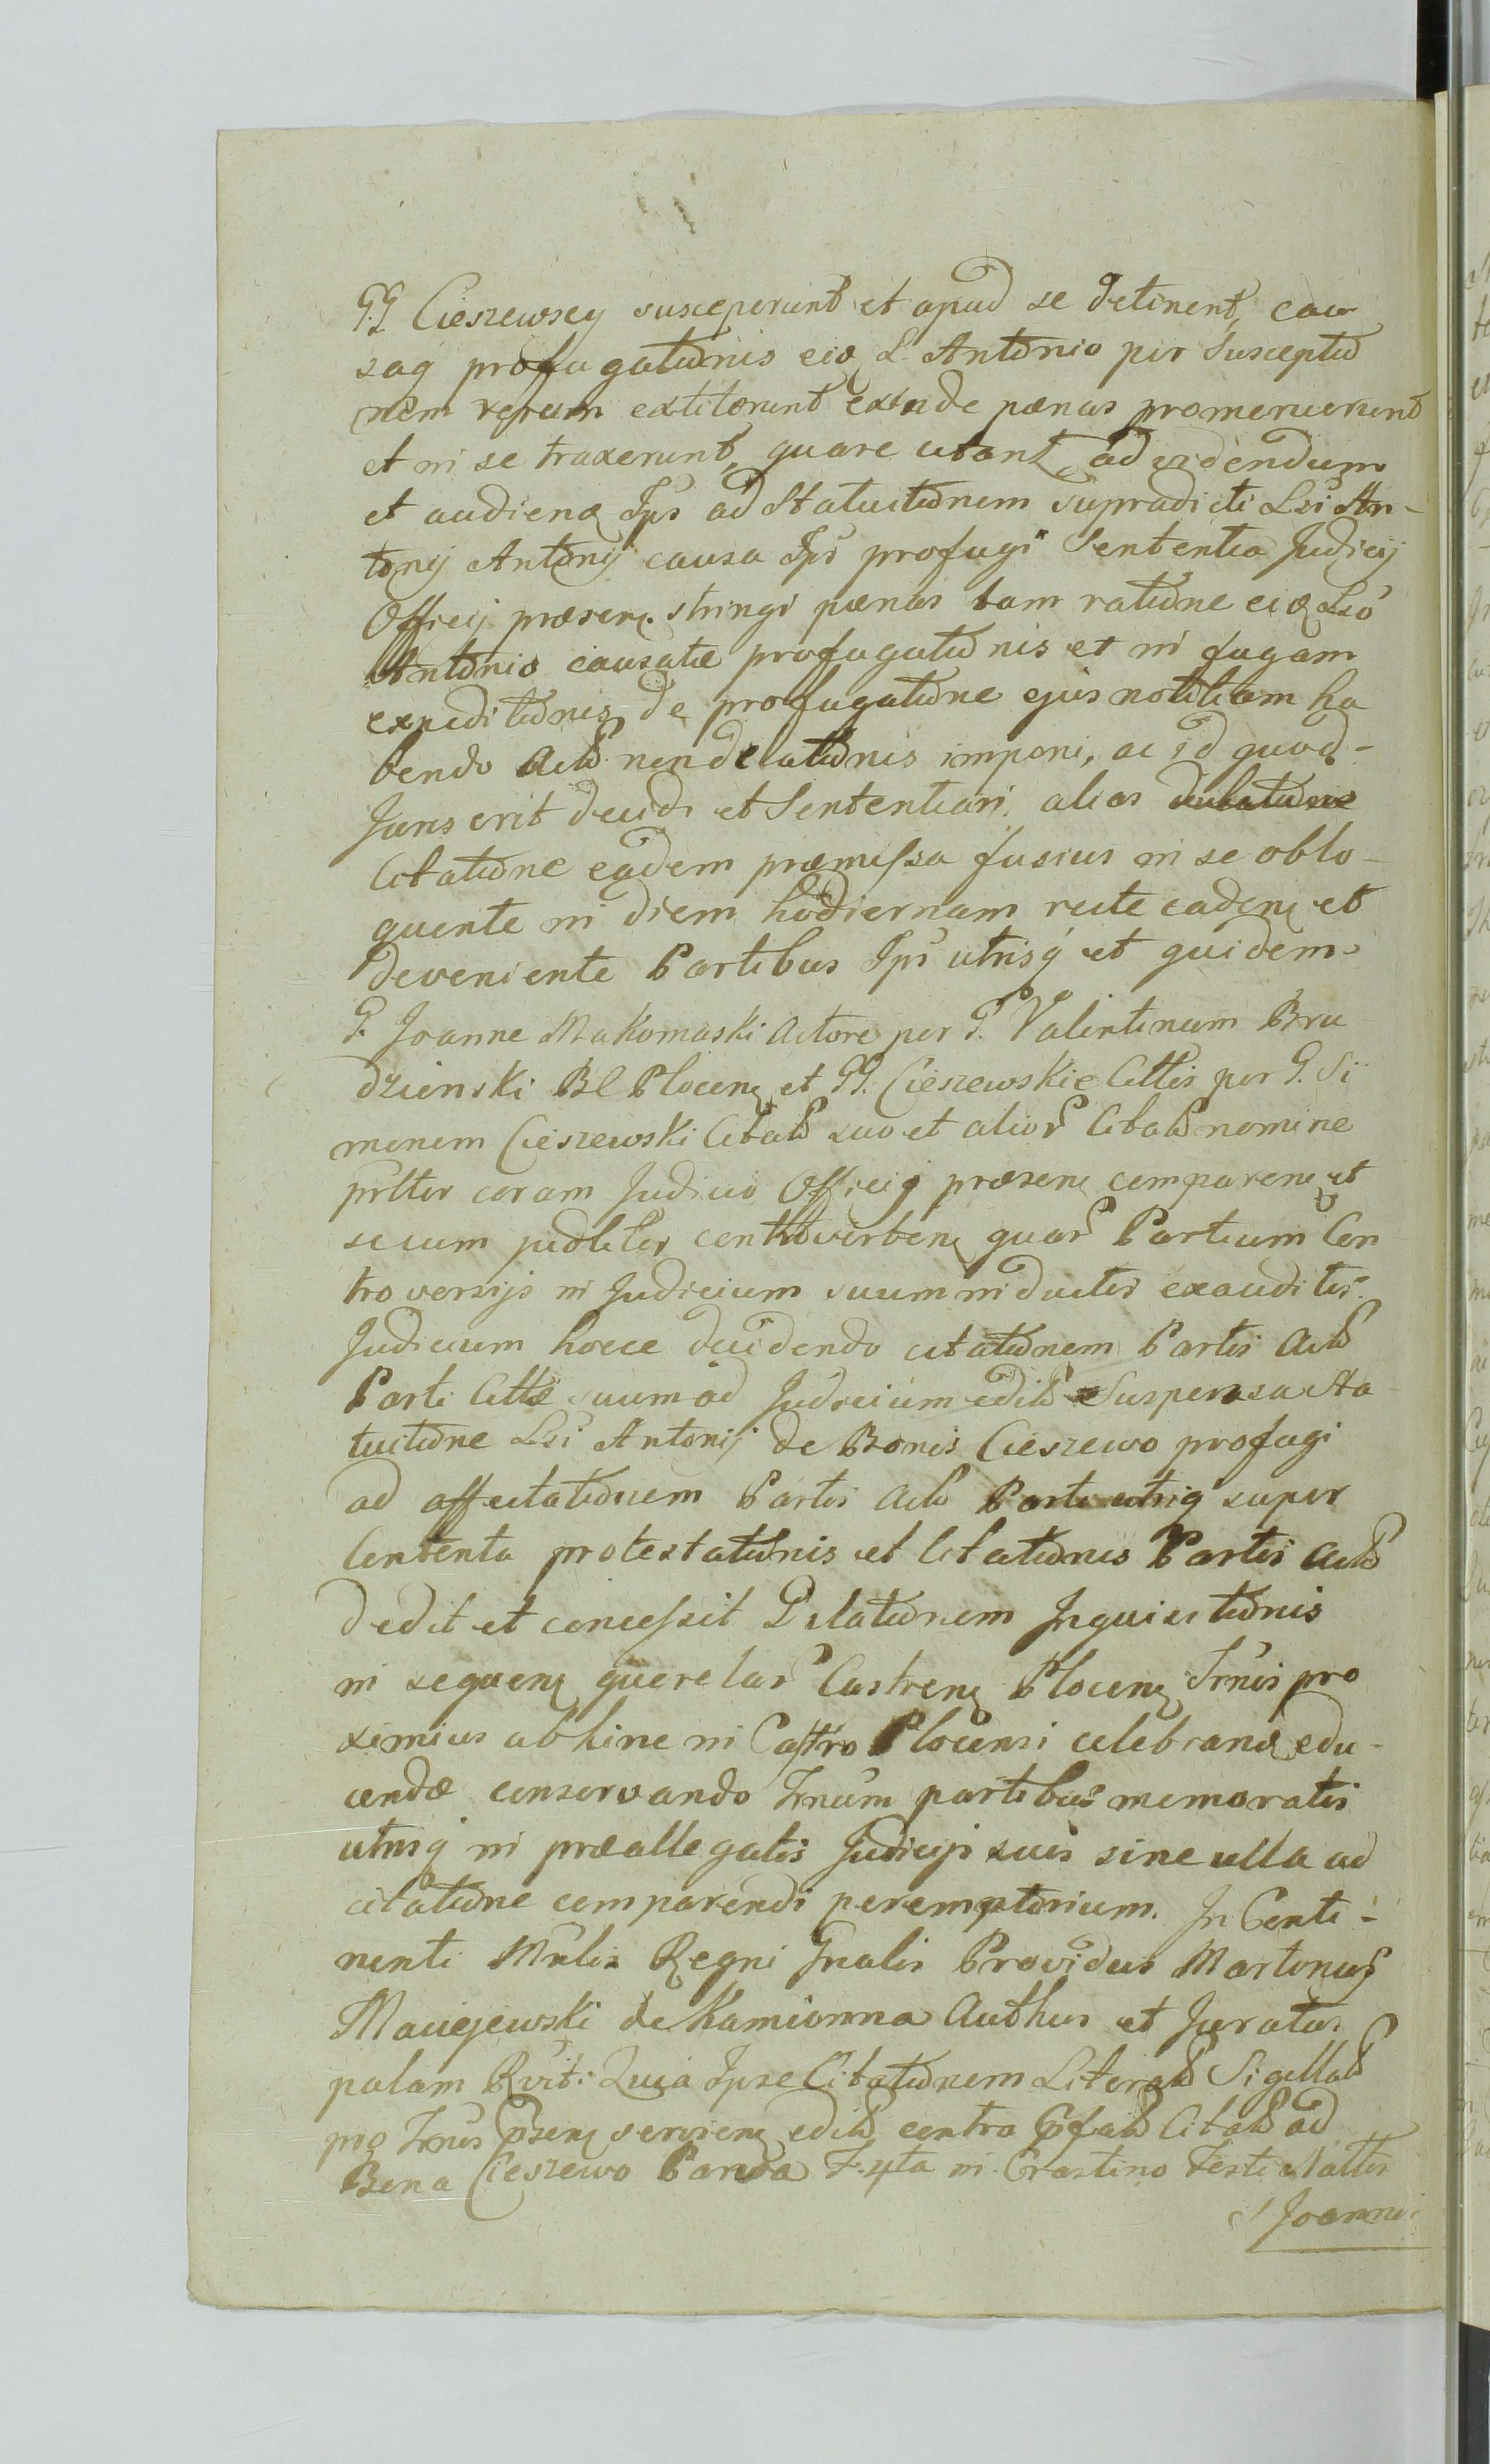 G.G Cieszewscy susceperunt et apud se detinent, cau
saq profugationis eid. L. Antonio per susceptio
nem rerum extiterunt exinde pænas promeruerunt
et in se traxerunt, quare citant, ad videndum
et audiend Ips ad Statuitionem supradicti Lsi An-
tonij Antonij causa Ips profugi Sententia Judicij
Officij præsen. stringi pænas tam ratione eid Lso
Antonio causatæ profugationis et in fugam
expeditionis, de profugatione ejus notitiam ha
bendo Acto. non delationis imponi, ac id quod-
Juris erit decidi et Sententiari. alias
Citatione eadem præmissa fusius in se oblo-
quente in diem hodiernam recte caden et
deveniente Partibus Ips utrisq et quidem
G. Joanne Makomaski Actore per G. Valentinum Bru
dzienski B C Plocen et GG. Cieszewskie Cittis per G. Si
monem Cieszewski Citato suo et alior Citato nomine
prlter coram Judicio Officij præsen comparen et
secum judltter controverten quar Partium Con
troversijs in Judicium suum inductis exauditis.
Judicium hocce decidendo citationem Partis Acto
Parti Cittæ suum ad Judicium edito Suspensa Sta
tuitione Lsi Antonij de Bonis Cieszewo profugi
ad affectationem Partis Acto Parti utriq super
Contenta protestationis et Citationis Partis Acto
dedit et concessit Dilationem Inquisitionis
in sequen querelar Castren Plocen Trnis pro
ximius abhinc in Castro Plocensi celebrand edu-
cendæ conservando Trnum partibus memoratis
utrisq in præallegatis Judicijs suis sine ulla ad
citatione comparendi peremptorium. In Conti-
nenti Mnlis Regni Gnalis Providus Martinus
Maciejewski de Kamionna Authus et Juratus
palam Rvit: Quia Ipse Citationem Literato Sigillato
pro Trnis prsen servien edito contra Prfato Citato ad
Bona Cieszewo Parva F. 4ta in Crastino Festi Nattis
S Joannis